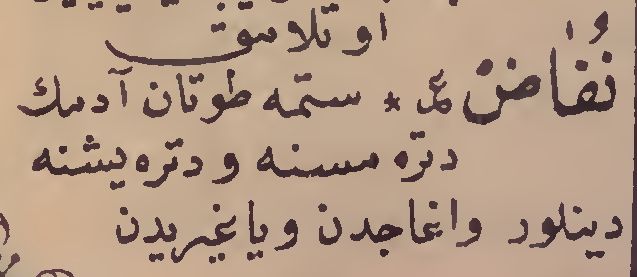 اوتلامق
نُفَاضٌ ع * ستمه طوتان آدمك
دتره مسنه و دتره یشنه
دینلور و اغاجدن و یا غیریدن